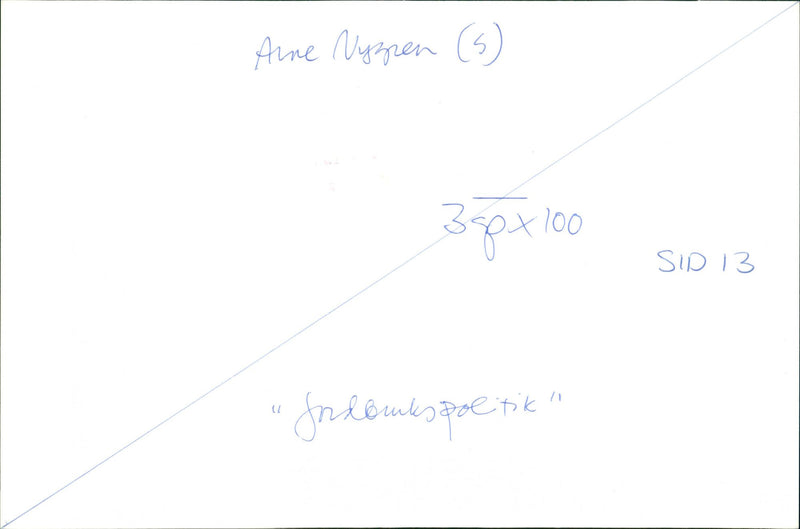 Arne Nygren (s)
3 sp x 100
SID 13
"Jordbrukspolitik"